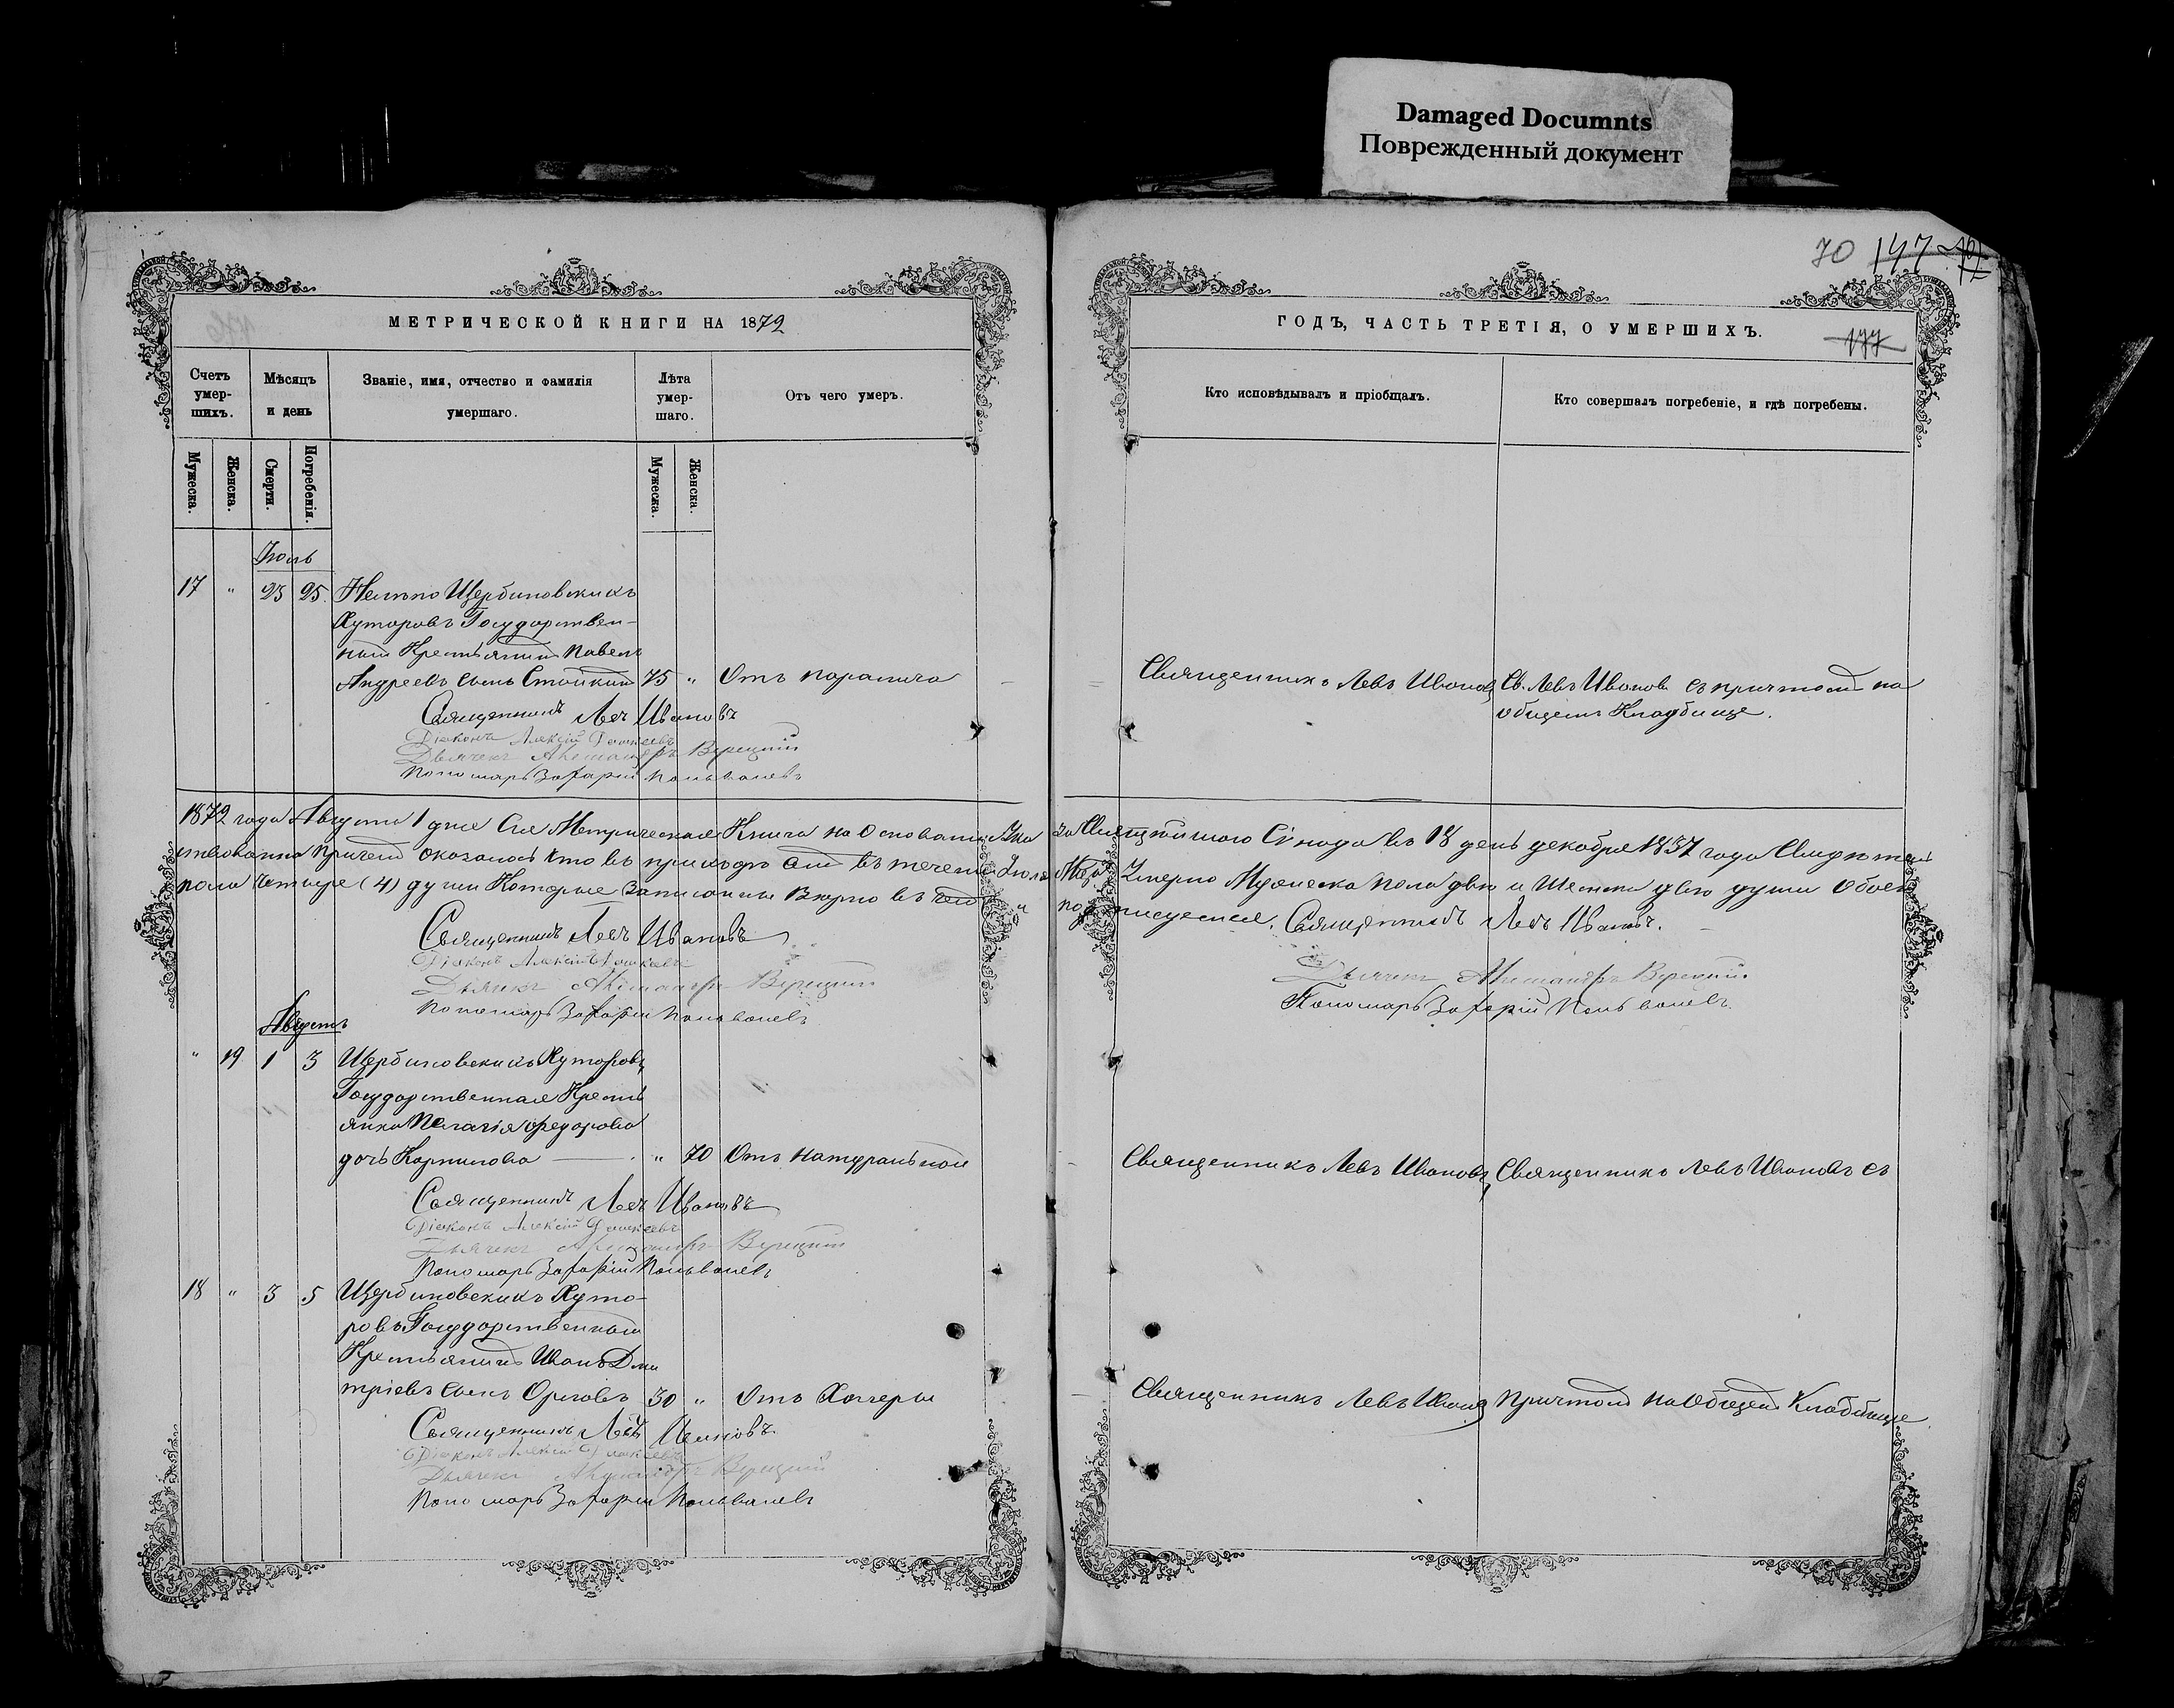 Damaged Documnts
Поврежденный документ
70 147
177
МЕТРИЧЕСКОЙ КНИГИ НА 1872
Счетъ умер-шихъ.
Мѣсяцъ и день
Званіе, имя, отчество и фамилія умершаго.
Лѣта умер-шаго.
Отъ чего умеръ.
Мужеска.
Женска.
Смерти.
Погребенія.
Мужеска.
Женска.
Іюль
17 " 23 25 Щербиновскихъ
Хуторовъ Государствен-
ный Крестьянинъ Павелъ
Андреевъ сынъ Стоцкий 75 " Отъ паралича
Священникъ Левъ Ивановъ
Діаконъ Алексій
Дьячекъ Александръ Верецкий
Пономарь Захарій
1872 года Августа 1 дня Сія Метрическая Книга на Основаніи Ука
причтомъ оказалось что въ приходѣ въ теченіи Іюля
пола четыре (4) души Которые Записаны Вѣрно въ чемъ и
Священникъ Левъ Ивановъ
Діаконъ Алексій
Дьячекъ Александръ Верецкий
Пономарь Захарій
Августъ
" 19 1 3 Щербиновскихъ Хуторовъ
Государственная Кресть
янка Пелагія Федорова
дочь Карпилова " 70 Отъ натуральной
Священникъ Левъ Ивановъ
Діаконъ Алексій
Дьячекъ Александръ Верецкий
Пономарь Захарій
18 " 3 5 Щербиновскихъ Хуто-
ровъ Государственный
Крестьянинъ Иванъ Дми
тріевъ сынъ Орловъ 30 " Отъ Холеры
Священникъ Левъ Ивановъ
Діаконъ Алексій
Дьячекъ Александръ Верецкий
Пономарь Захарій
ГОДЪ, ЧАСТЬ ТРЕТІЯ, О УМЕРШИХЪ.
Кто исповѣдывалъ и пріобщалъ.
Кто совершалъ погребеніе, и гдѣ погребены.
Священникъ Левъ Ивановъ
Св. Левъ Ивановъ съ причтомъ на
общемъ Кладбище.
за Святѣйшаго Сѵнода въ 18 день декабря 1837 года
Мца Умерло Мужеска пола двѣ и Женска двѣ души Обоего
подписуемся. Священникъ Левъ Ивановъ.
Дьячекъ Александръ Верецкий
Пономарь Захарій
Священникъ Левъ Ивановъ
Священникъ Левъ Ивановъ съ
Священникъ Левъ Ивановъ
Причтомъ на Общемъ Кладбище